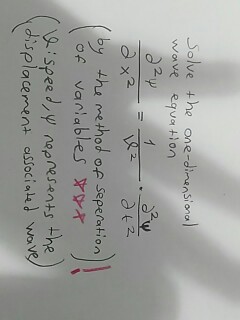 Solve the one-dimensional
wave equation
∂²ψ/∂x² = 1/ϑ² · ∂²ψ/∂t²
(by the method of seperation)
(of variables ☆☆☆)!
(ϑ: speed, ψ represents the
displacement associated wave)